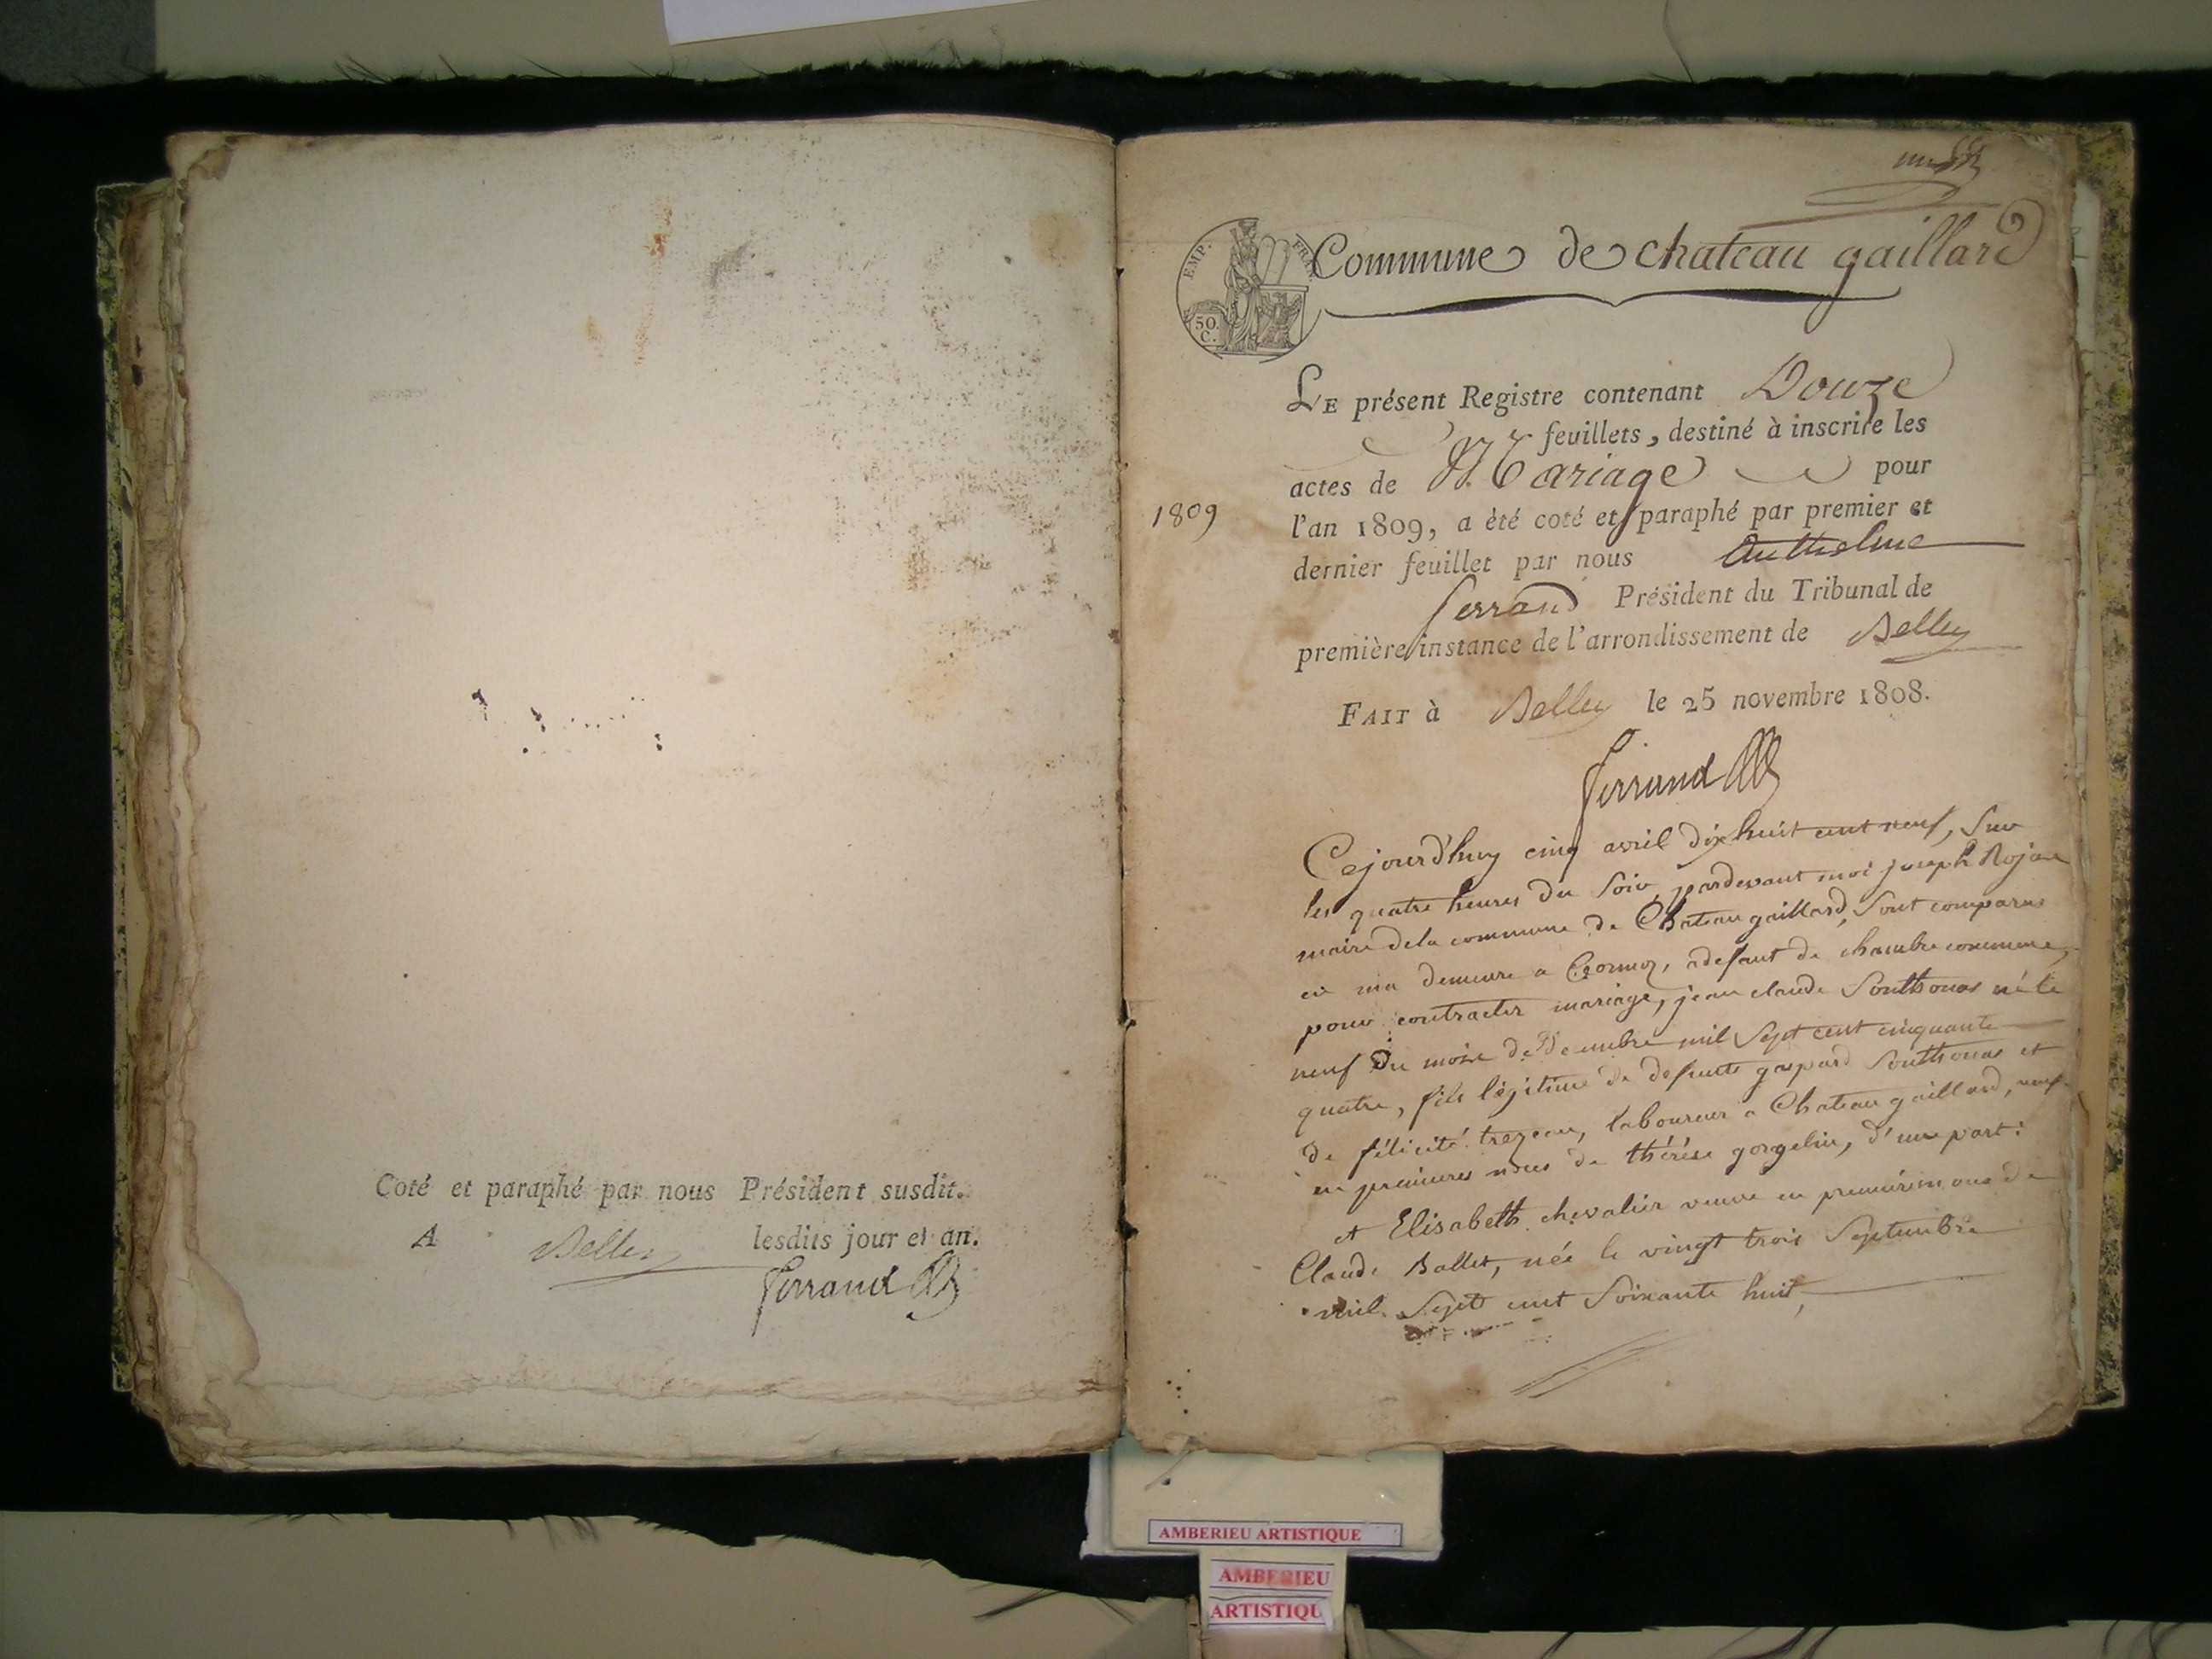 Coté et paraphé par nous Président susdit.
A Belley lesdits jour et an.
Ferrand
EMP. FRAN.
50.
C.
Commune de chateau gaillard
LE présent Registre contenant Douze
feuillets, destiné à inscrire les
actes de Mariage pour
1809
l'an 1809, a èté coté et paraphé par premier et
dernier feuillet par nous Anthelme
ferrand Président du Tribunal de
première instance de l'arrondissement de Belley
FAIT à Belley le 25 novembre 1808.
Ferrand
Cejourd'huy cinq avril dix huit cent neuf, sur
les quatre heures du soir, pardevant moi joseph Rojan
maire dela commune de Chateau gaillard, sont comparus
en ma demeure a Cormoz, adefaut de chambre commune,
pour contracter mariage, jean claude Southonas né le
neuf du mois de Decembre mil sept cent cinquante
quatre, fils légitime de defunts gaspard Southonas et
de félicité trezeau, laboureur a Chateau gaillard, veuf
en premieres noces de thérése gorgelin, d'une part:
et Elisabeth chevalier veuve en premieres noces de
Claude Ballet, née le vingt trois Septembre
mil Sept cent Soixante huit,
AMBERIEU ARTISTIQUE
AMBERIEU
ARTISTIQU